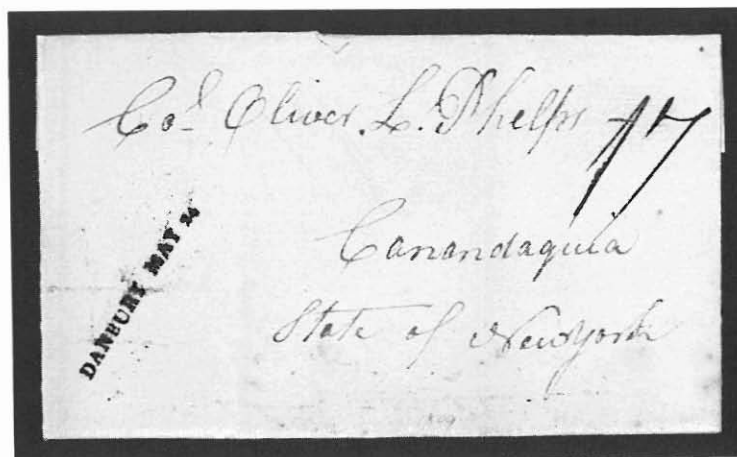 Col Oliver. L. Phelps 17
Canandaquia
State of Newyork
DANBURY MAY 24